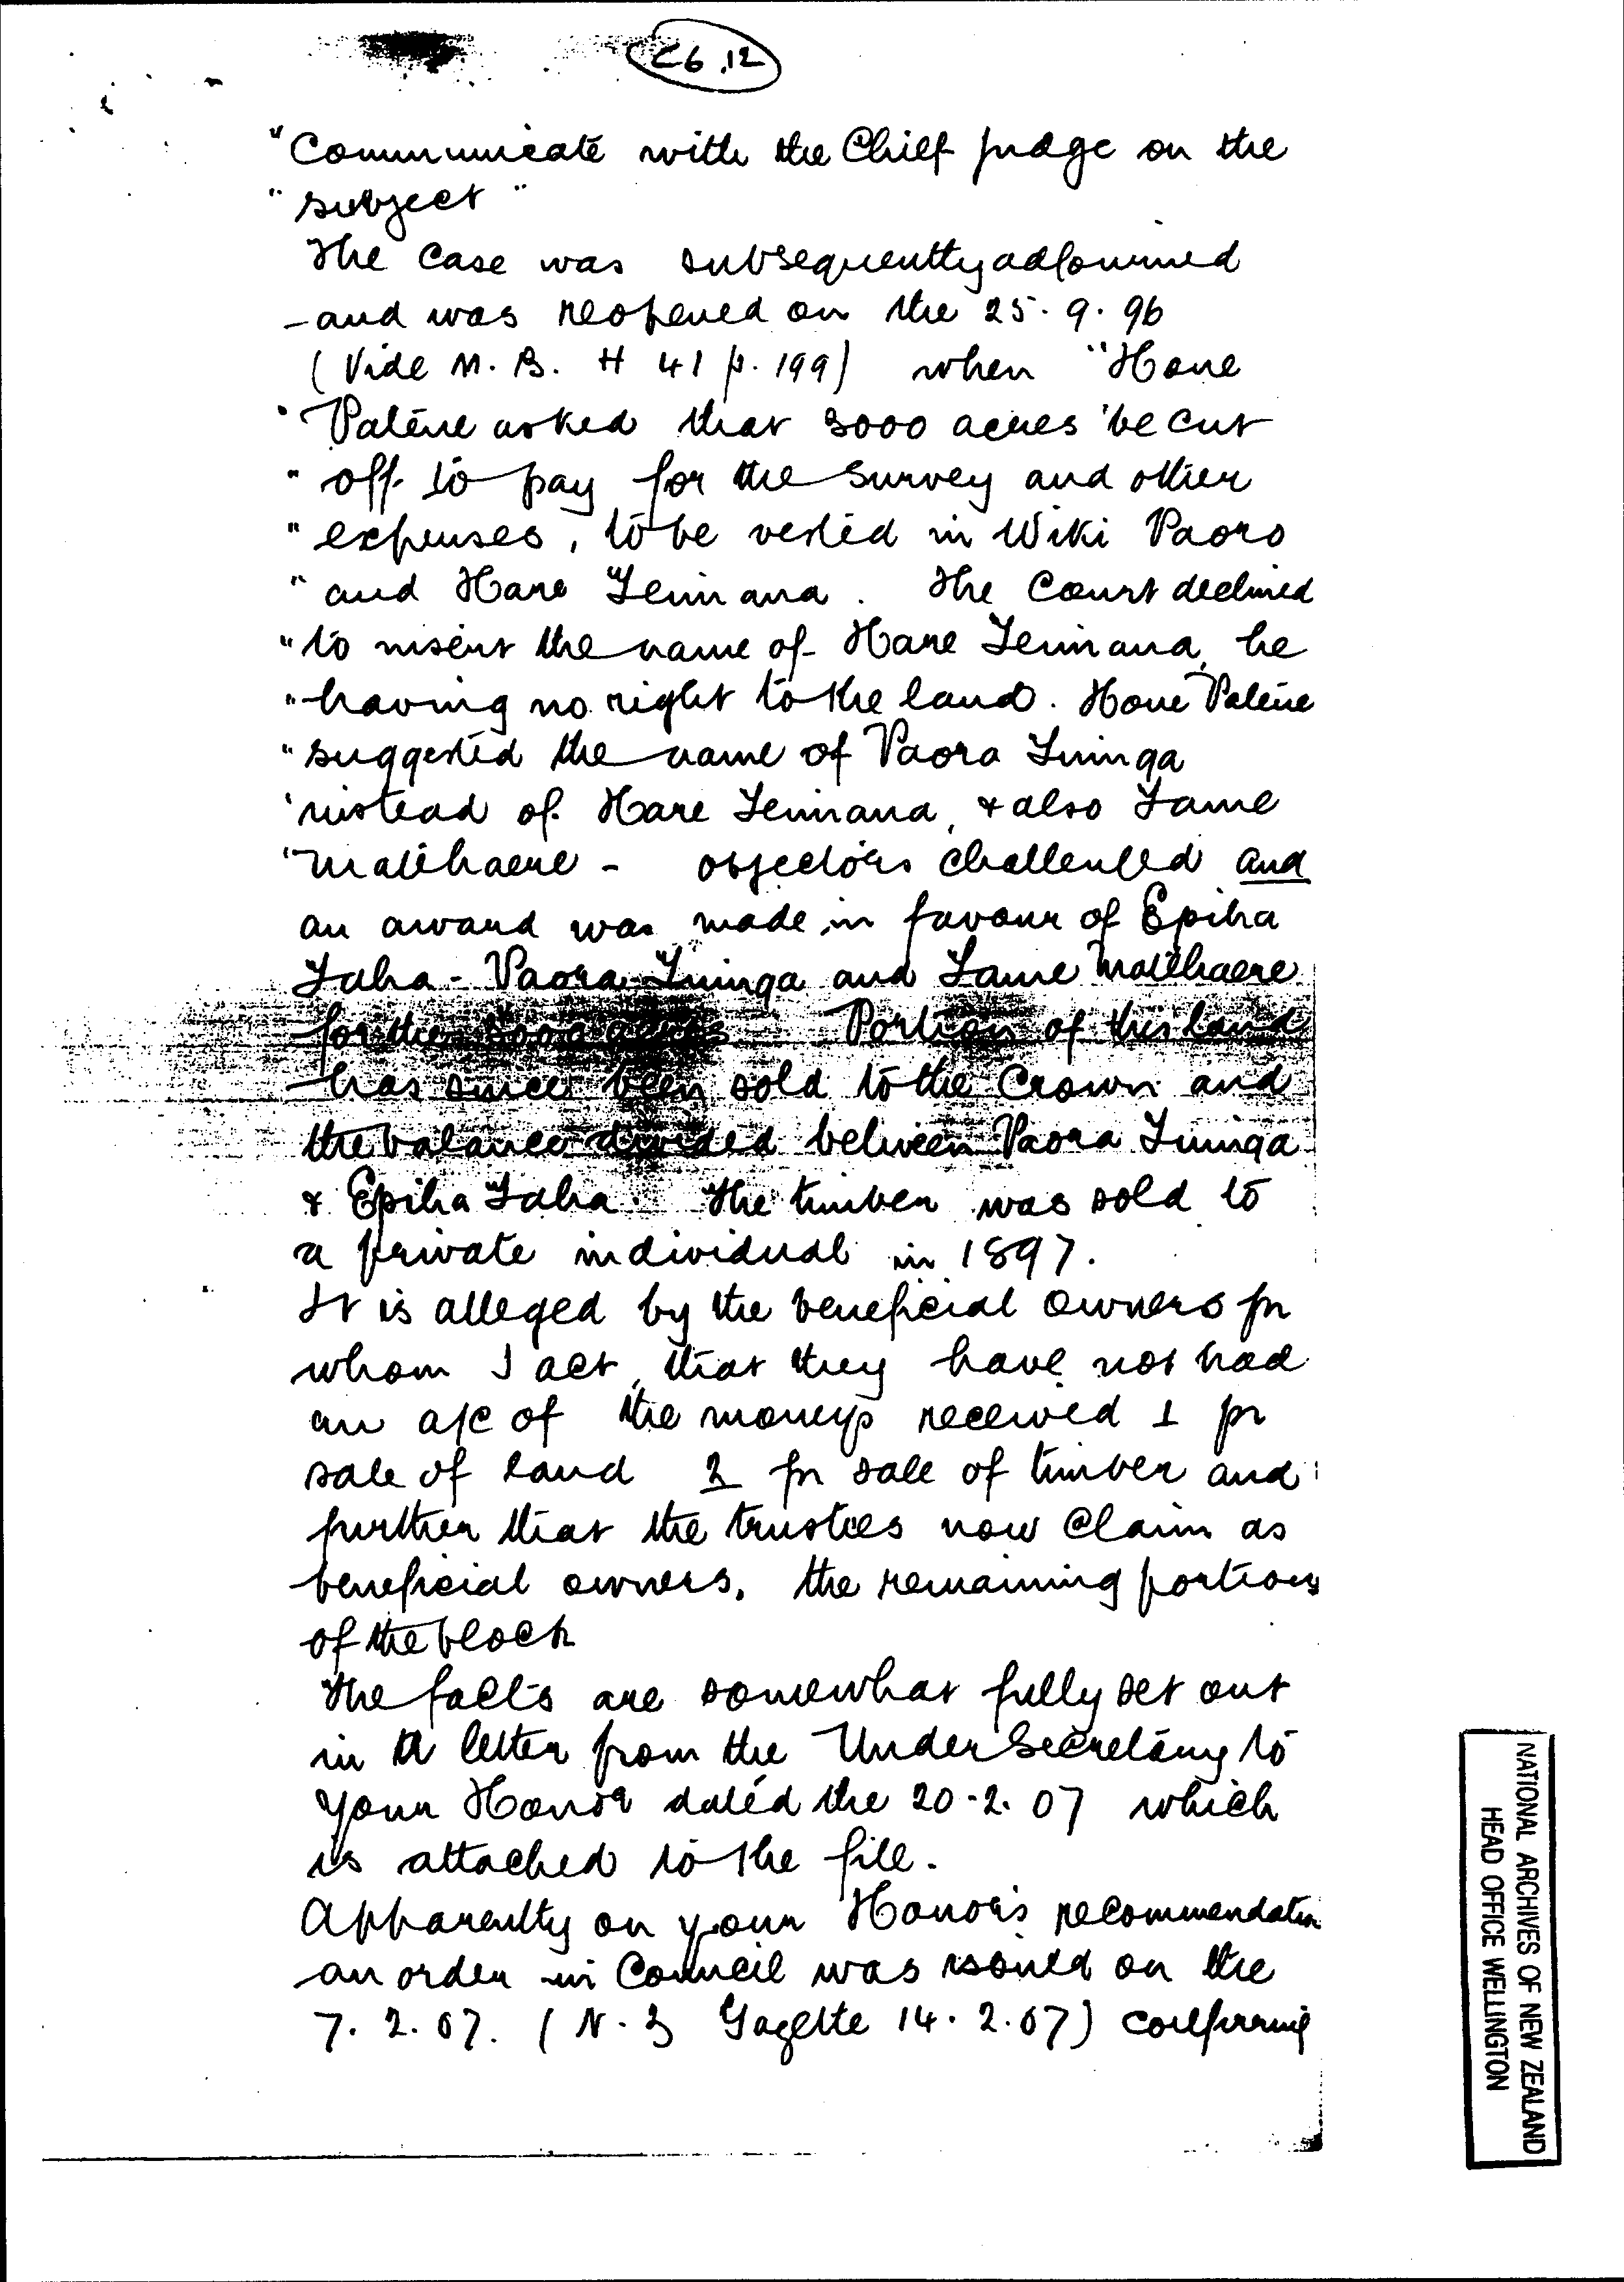 C6,12
"Communicate with the Chief Judge on the
"subject"
The case was subsequently adjourned
and was reopened on the 25.9.96
(Vide M.B. H 41 p.199) when "Hone
"Patene asked that 3000 acres be cut
"off to pay for the survey and other
"expenses, to be vested in Wiki Paoro
"and Hare Teimana. The Court declined
"to insert the name of Hare Teimana, he
"having no right to the land. Hone Patene
"suggested the name of Paora Tuinga
"instead of Hare Teimana, & also Tame
"Matehaere - objectors challenged and
an award was made in favour of Epiha
Taha - Paora Tuinga and Tame Matehaere
for the 3000 acres Portion of this land
has since been sold to the Crown and
the balance divided between Paora Tuinga
& Epiha Taha. The timber was sold to
a private individual in 1897.
It is alleged by the beneficial owners for
whom I act, that they have not had
an a/c of the moneys received 1 for
sale of land 2 for sale of timber and
further that the trustees now claim as
beneficial owners, the remaining portions
of the block
The facts are somewhat fully set out
in a letter from the Under Secretary to
your Honor dated the 20-2.07 which
is attached to the file.
Apparently on your Honor's recommendation
an order in Council was issued on the
7.2.07. (N.Z Gazette 14.2.07) conferring
NATIONAL ARCHIVES OF NEW ZEALAND
HEAD OFFICE WELLINGTON